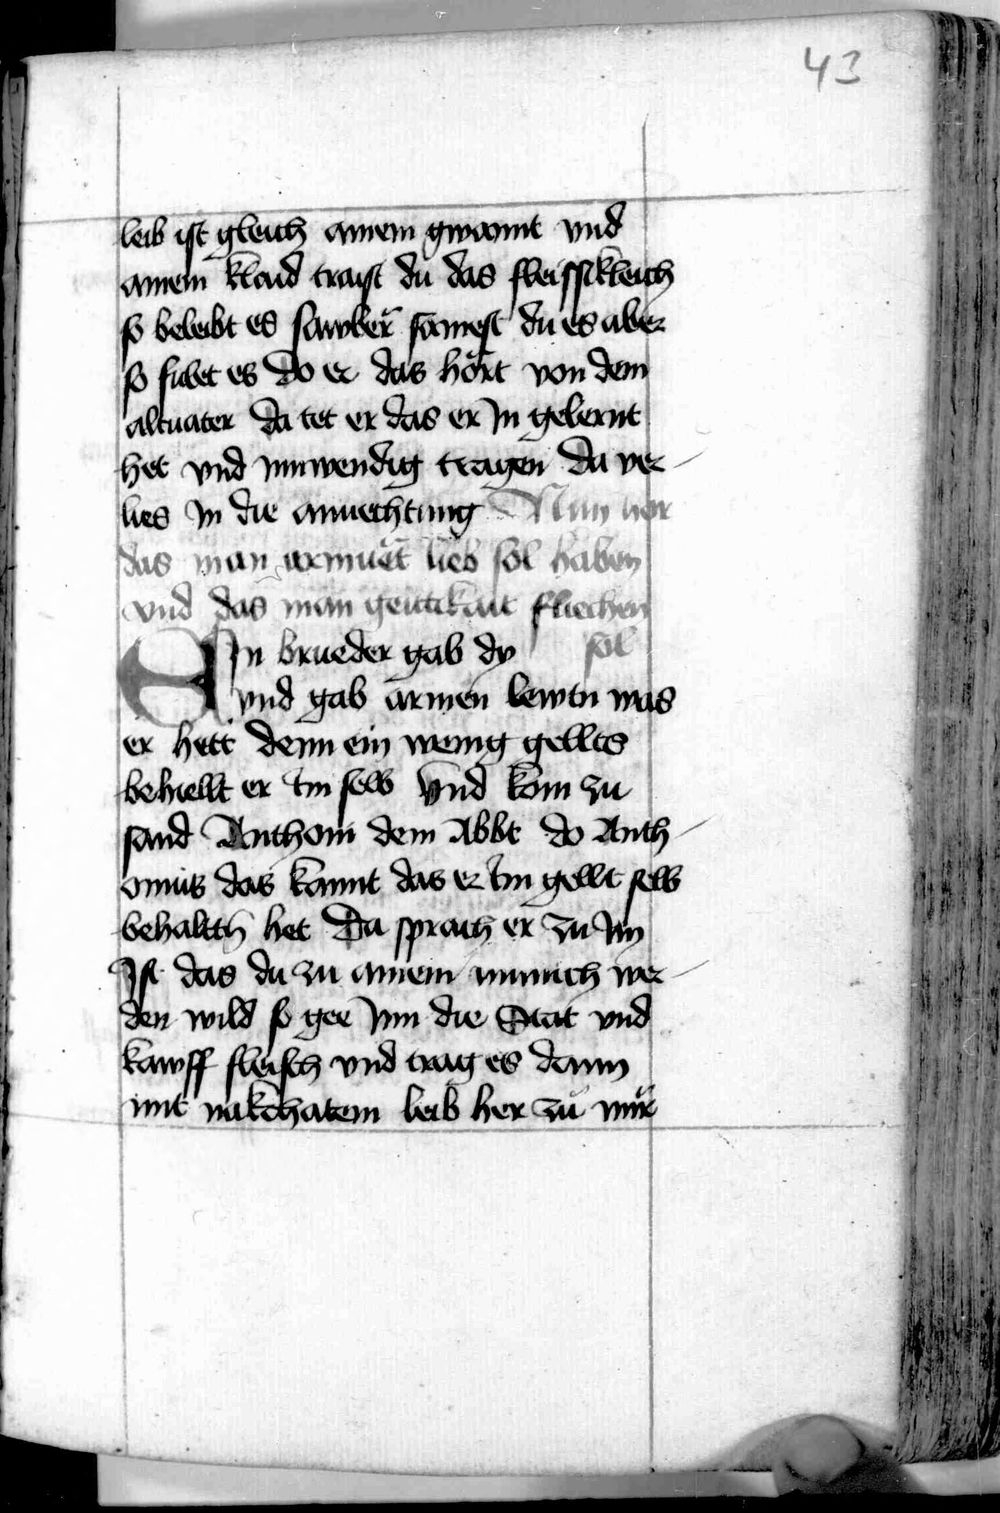 43
leib ist gleich ainem gwannt vnd
ainem klaid traist du das fleissikleich
so beleibt es sawber sawmest du es aber
so fulet es Do er das hört von dem
altuater da tet er das er In gelernt
het vnd Inwendig tragen Da ver-
lies In die anuechtung Nun hör
das man armuet lieb sol haben
vnd das man geitikait fliechen
sol
EIn brueder gab dy
vnd gab armen lewtn was
er hett denn ein wenig gelltes
behiellt er Im selb Vnd kom zu
sand Anthoni dem Abbt do Anth-
onius das kannt das er Im gellt selb
behaltn het Da sprach er zu Im
Ist das du zu ainem munich wer-
den wild so gee Inn die Stat vnd
kawff fleisch vnd trag es dann
mit nakchatem leib her zu mir